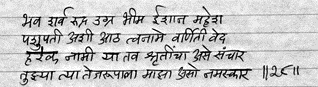 भव शर्व रुद्र उग्र भीम ईशान महेश
पशुपती अशी आठ त्वनामे वर्णिती वेद
हरेक नामी या तव श्रृतींचा असे संचार
तुझ्या त्या तेजरूपाला माझा असो नमस्कार ॥२८॥